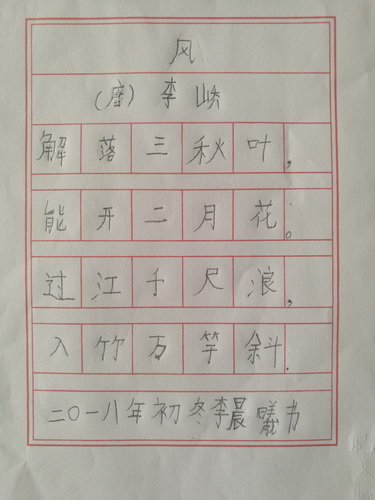 风
（唐）李峤
解落三秋叶，
能开二月花。
过江千尺浪，
入竹万竿斜.
二〇一八年初冬李晨曦书